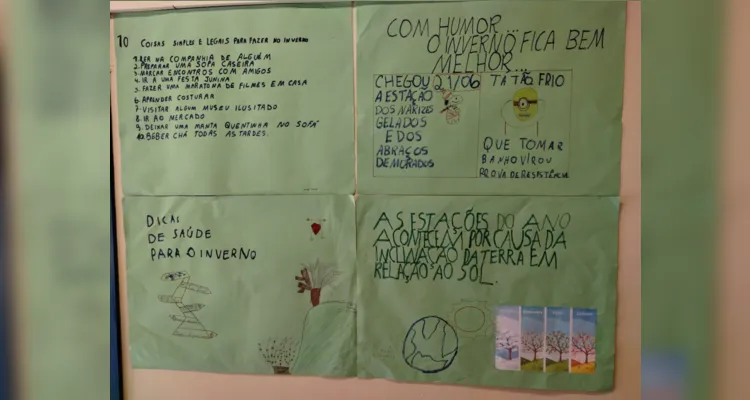 10 COISAS SIMPLES E LEGAIS PARA FAZER NO INVERNO
1. LER NA COMPANHIA DE ALGUÉM
2. PREPARAR UMA SOPA CASEIRA
3. MARCAR ENCONTROS COM AMIGOS
4. IR A UMA FESTA JUNINA
5. FAZER UMA MARATONA DE FILMES EM CASA
6. APRENDER COSTURAR
7. VISITAR ALGUM MUSEU ILUSITADO
8. IR AO MERCADO
9. DEIXAR UMA MANTA QUENTINHA NO SOFÁ
10. BEBER CHÁ TODAS AS TARDES.
COM HUMOR
O INVERNO FICA BEM
MELHOR...
CHEGOU 21/06
A ESTAÇÃO
DOS NARIZES
GELADOS
E DOS
ABRAÇOS
DEMORADOS
TA TÃO FRIO
QUE TOMAR
BANHO VIROU
PROVA DE RESISTÊNCIA
DICAS
DE SAÚDE
PARA O INVERNO
AS ESTAÇÕES DO ANO
ACONTECEM POR CAUSA DA
INCLINAÇÃO DA TERRA EM
RELAÇÃO AO SOL.